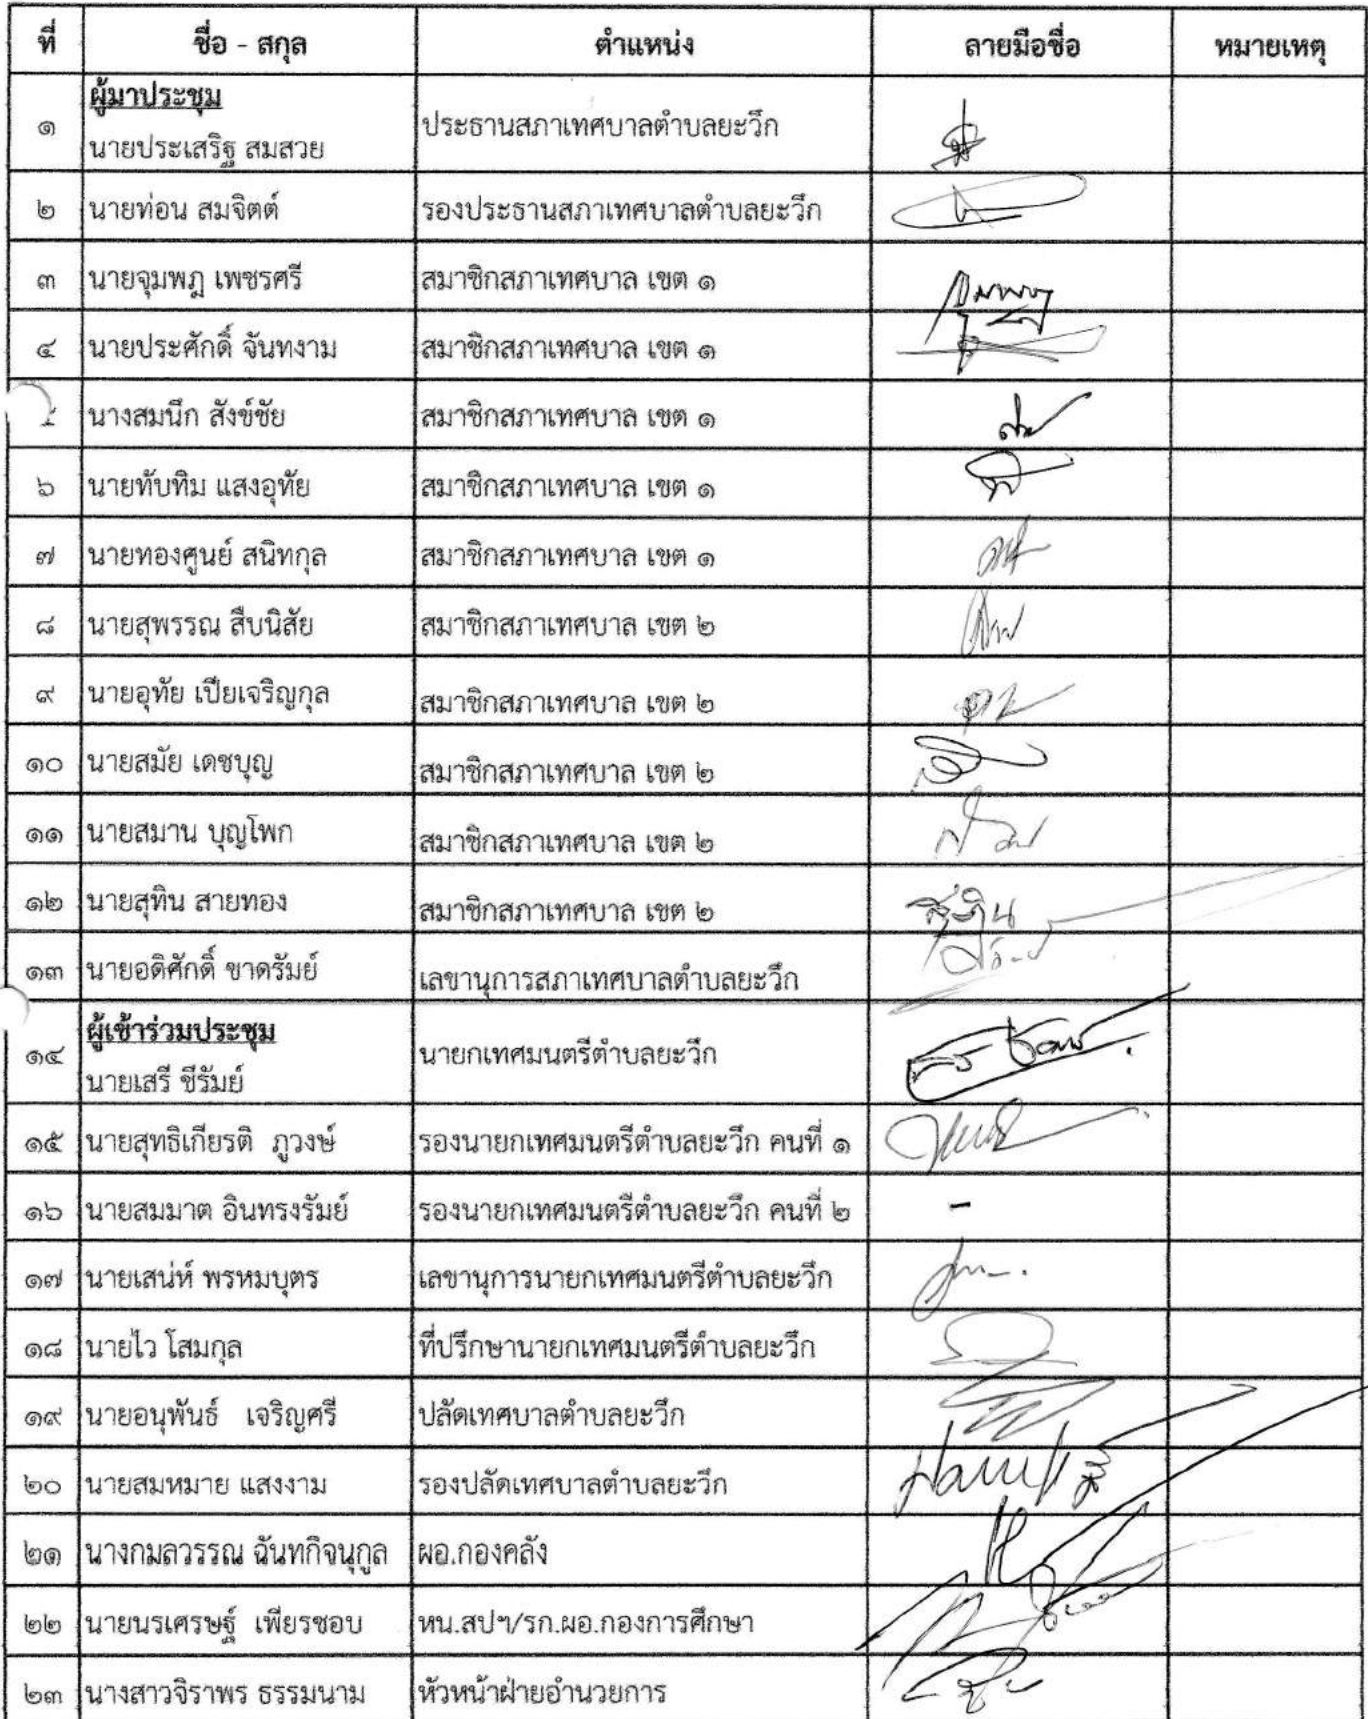 ที่ ชื่อ - สกุล ตำแหน่ง ลายมือชื่อ หมายเหตุ
ผู้มาประชุม
๑ นายประเสริฐ สมสวย ประธานสภาเทศบาลตำบลยะวึก
๒ นายท่อน สมจิตต์ รองประธานสภาเทศบาลตำบลยะวึก
๓ นายจุมพฎ เพชรศรี สมาชิกสภาเทศบาล เขต ๑
๔ นายประศักดิ์ จันทงาม สมาชิกสภาเทศบาล เขต ๑
นางสมนึก สังข์ชัย สมาชิกสภาเทศบาล เขต ๑
๖ นายทับทิม แสงอุทัย สมาชิกสภาเทศบาล เขต ๑
๗ นายทองศูนย์ สนิทกุล สมาชิกสภาเทศบาล เขต ๑
๘ นายสุพรรณ สืบนิสัย สมาชิกสภาเทศบาล เขต ๒
๙ นายอุทัย เปียเจริญกุล สมาชิกสภาเทศบาล เขต ๒
๑๐ นายสมัย เดชบุญ สมาชิกสภาเทศบาล เขต ๒
๑๑ นายสมาน บุญโพก สมาชิกสภาเทศบาล เขต ๒
๑๒ นายสุทิน สายทอง สมาชิกสภาเทศบาล เขต ๒ สุทิน
๑๓ นายอดิศักดิ์ ชาดรัมย์ เลขานุการสภาเทศบาลตำบลยะวึก
ผู้เข้าร่วมประชุม
๑๔ นายเสรี ชีรัมย์ นายกเทศมนตรีตำบลยะวึก
๑๕ นายสุทธิเกียรติ ภูวงษ์ รองนายกเทศมนตรีตำบลยะวึก คนที่ ๑
๑๖ นายสมมาต อินทรงรัมย์ รองนายกเทศมนตรีตำบลยะวึก คนที่ ๒ -
๑๗ นายเสน่ห์ พรหมบุตร เลขานุการนายกเทศมนตรีตำบลยะวึก
๑๘ นายไว โสมกุล ที่ปรึกษานายกเทศมนตรีตำบลยะวึก
๑๙ นายอนุพันธ์ เจริญศรี ปลัดเทศบาลตำบลยะวึก
๒๐ นายสมหมาย แสงงาม รองปลัดเทศบาลตำบลยะวึก
๒๑ นางกมลวรรณ ฉันทกิจนุกูล ผอ.กองคลัง
๒๒ นายนรเศรษฐ์ เพียรชอบ หน.สปฯ/รก.ผอ.กองการศึกษา
๒๓ นางสาวจิราพร ธรรมนาม หัวหน้าฝ่ายอำนวยการ